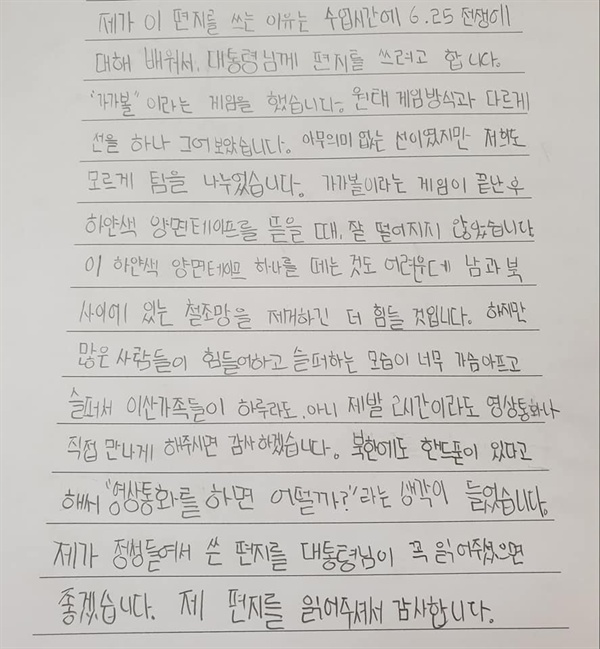 제가 이 편지를 쓰는 이유는 수업시간에 6.25 전쟁에
대해 배워서, 대통령님께 편지를 쓰려고 합니다.
"가가볼"이라는 게임을 했습니다. 원래 게임방식과 다르게
선을 하나 그어보았습니다. 아무의미 없는 선이였지만 저희도
모르게 팀을 나누었습니다. 가가볼이라는 게임이 끝난 후
하얀색 양면테이프를 뜯을 때, 잘 떨어지지 않았습니다
이 하얀색 양면테이프 하나를 떼는 것도 어려운데 남과 북
사이에 있는 철조망을 제거하긴 더 힘들 것입니다. 하지만
많은 사람들이 힘들어하고 슬퍼하는 모습이 너무 가슴아프고
슬퍼서 이산가족들이 하루라도, 아니 제발 2시간이라도 영상통화나
직접 만나게 해주시면 감사하겠습니다. 북한에도 핸드폰이 있다고
해서 "영상통화를 하면 어떨까?"라는 생각이 들었습니다.
제가 정성들여서 쓴 편지를 대통령님이 꼭 읽어주셨으면
좋겠습니다. 제 편지를 읽어주셔서 감사합니다.